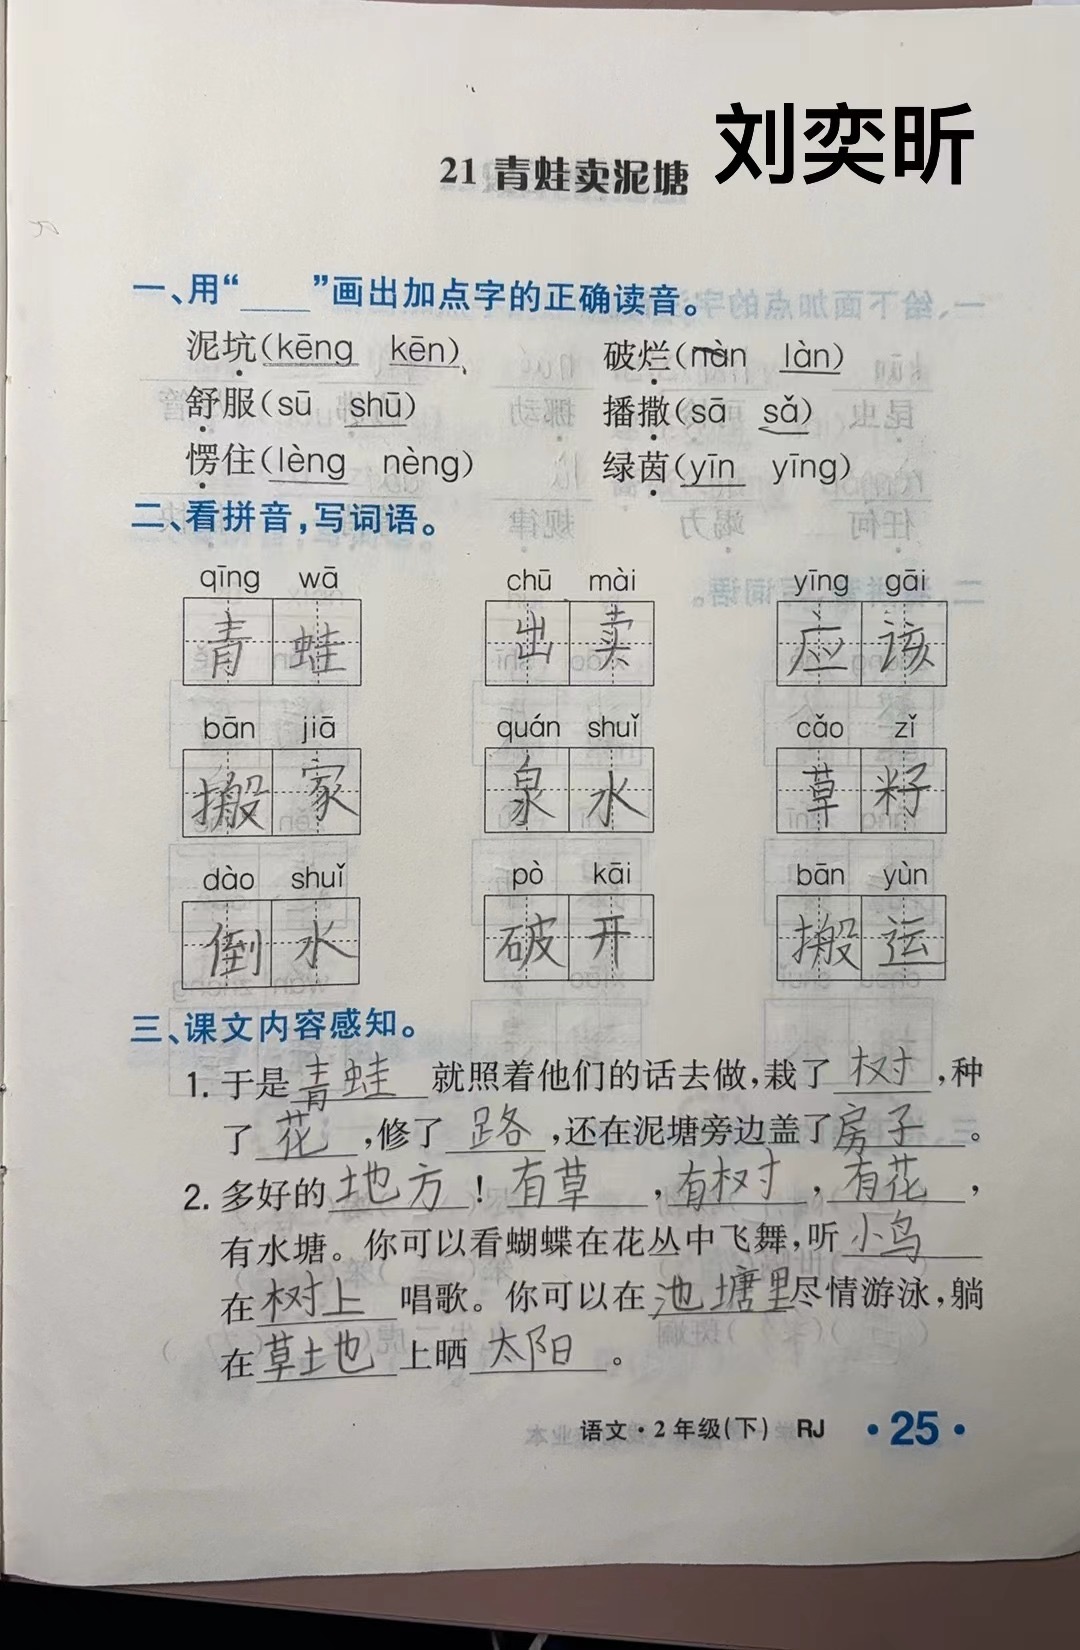 刘奕昕
21 青蛙卖泥塘
一、用“____”画出加点字的正确读音。
泥坑(kēng kēn) 破烂(nàn làn)
舒服(sū shū) 播撒(sā sǎ)
愣住(lèng nèng) 绿茵(yīn yīng)
二、看拼音,写词语。
qīng wā chū mài yīng gāi
青蛙 出卖 应该
bān jiā quán shuǐ cǎo zǐ
搬家 泉水 草籽
dào shuǐ pò kāi bān yùn
倒水 破开 搬运
三、课文内容感知。
1. 于是青蛙就照着他们的话去做,栽了树,种
了花,修了路,还在泥塘旁边盖了房子。
2. 多好的地方!有草,有树,有花,
有水塘。你可以看蝴蝶在花丛中飞舞,听小鸟
在树上唱歌。你可以在池塘里尽情游泳,躺
在草地上晒太阳。
语文·2年级(下) RJ ·25·